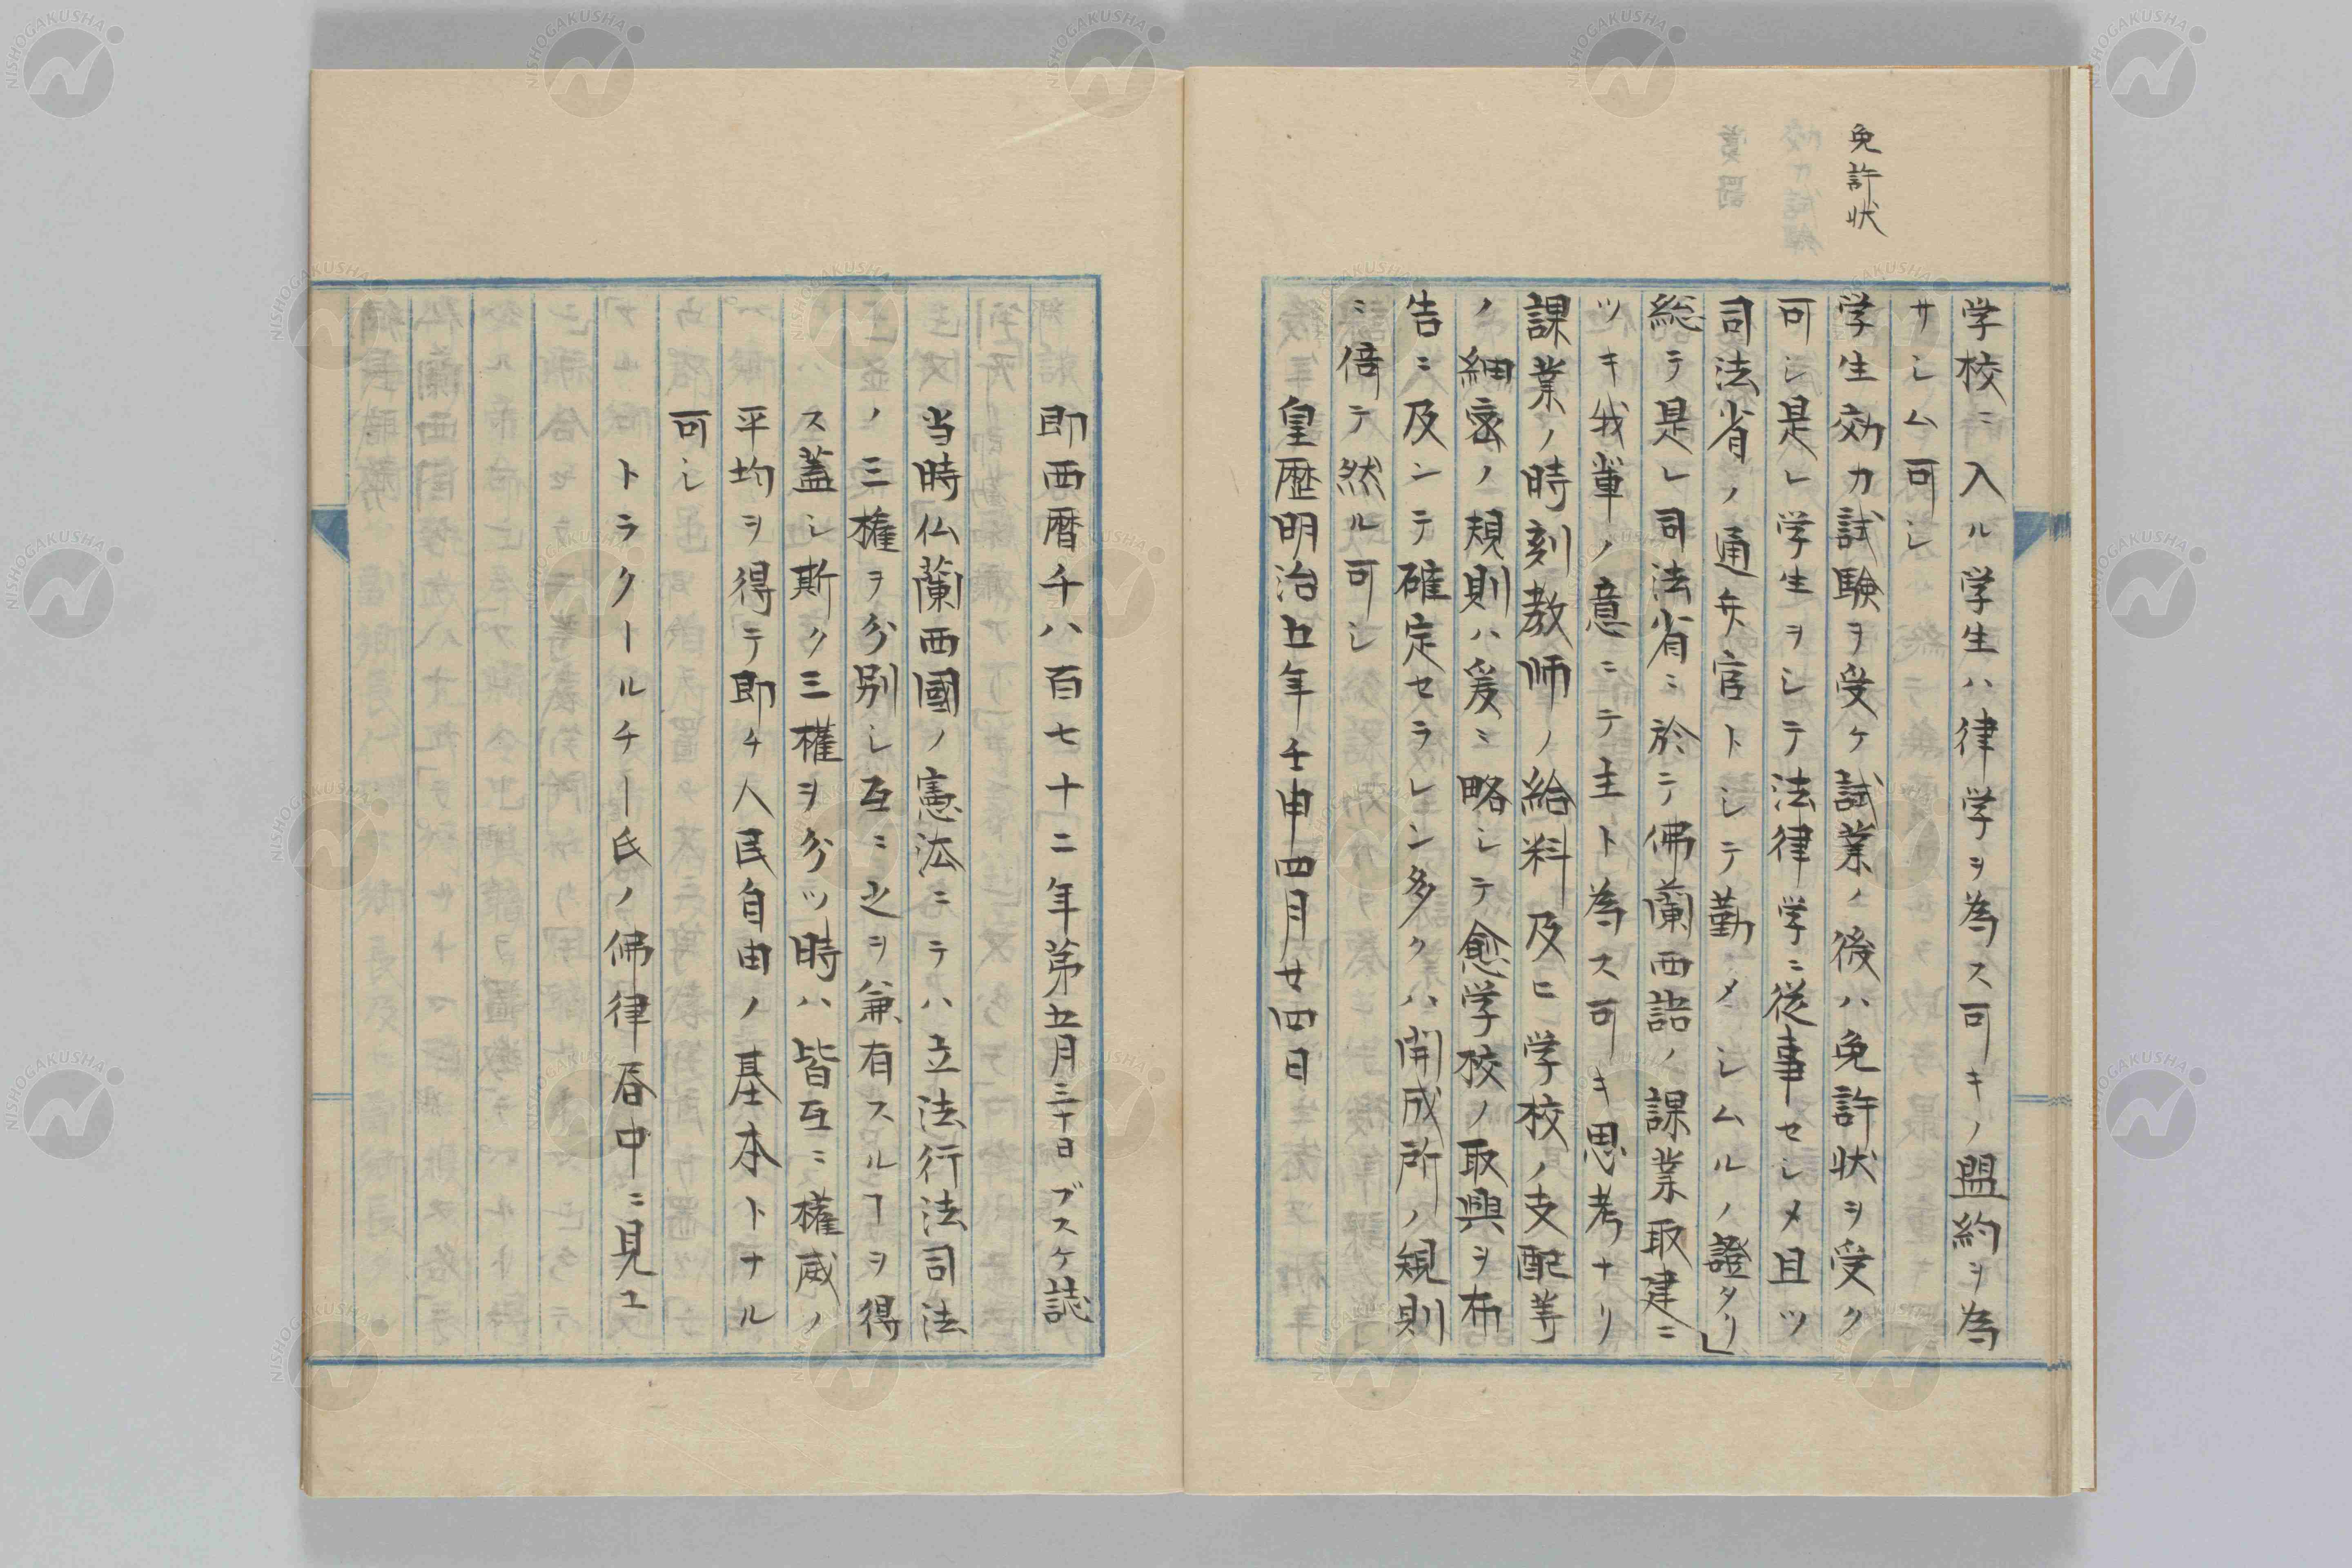 免許状
学校ニ入ル学生ハ律学ヲ為ス可キノ盟約ヲ為
サシム可シ
学生効力試験ヲ受ケ試業ノ後ハ免許状ヲ受ク
可シ是レ学生ヲシテ法律学ニ従事セシメ且ツ
司法省ノ通弁官トシテ勤メシムルノ證タリ」
総テ是レ司法省ニ於テ佛蘭西語ノ課業取建ニ
ツキ我輩ノ意ニテ主ト為ス可キ思考ナリ
課業ノ時刻教師ノ給料及ヒ学校ノ支配等
ノ細密ノ規則ハ爰ニ略シテ愈学校ノ取興ヲ布
告ニ及ンテ確定セラレン多クハ開成所ノ規則
ニ倍テ然ル可シ
皇歴明治五年壬申四月廿四日
即西暦千八百七十二年第五月三十日ブスケ誌
当時仏蘭西國ノ憲法ニテハ立法行法司法
ノ三権ヲ分別シ互ニ之ヲ兼有スルヿヲ得
ス蓋シ斯ク三權ヲ分ツ時ハ皆互ニ權威ノ
平均ヲ得テ即チ人民自由ノ基本トナル
可シ
トラクールチー氏ノ佛律唇中ニ見エ
NISHOGAKUSHA